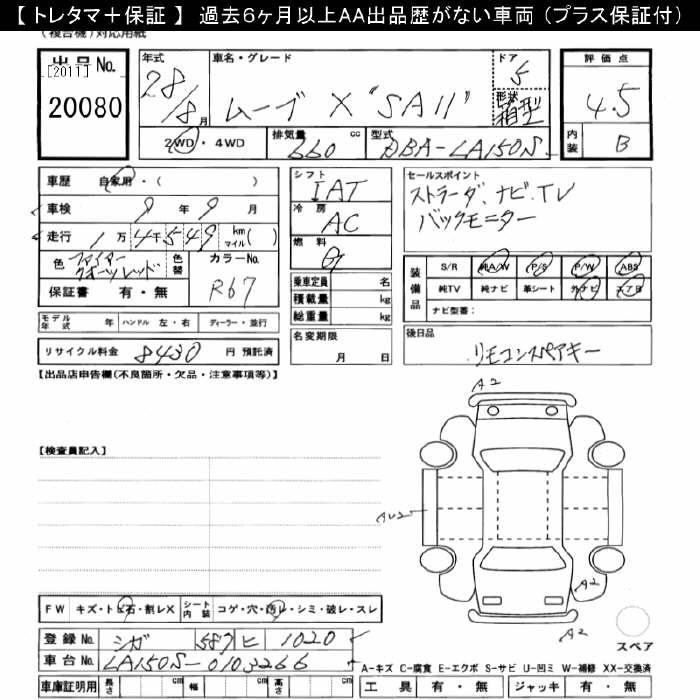 【トレタマ＋保証】 過去6ヶ月以上AA出品歴がない車両（プラス保証付）
（複合機）対応用紙
出品No.
[2011]
20080
年式
28/8月
車名・グレード
ムーブ X "SAII"
ドア
5
形状
箱型
評価点
4.5
内装
B
2WD・4WD
排気量
660
cc
型式
DBA-LA150S
車歴 自家用・( )
車検 9年 9月
走行 1万 4千 5 4 9 km マイル( )
色 ファイヤークオーツレッド
色替
カラーNo.
R67
保証書 有・無
シフト
IAT
冷房
AC
燃料
G
乗車定員 名
積載量 kg
総重量 kg
セールスポイント
ストラーダ、ナビ、TV
バックモニター
装備品
S/R 純A/W P/S P/W ABS
純TV 純ナビ 革シート 外ナビ エアB
ナビ型番：
モデル年式 年 ハンドル 左・右 ディーラー・並行
名変期限
月 日
後日品
リモコンスペアキー
リサイクル料金 8430 円 預託済
【出品店申告欄(不良箇所・欠品・注意事項等)】
A2
【検査員記入】
AU2
A2
A2
FW キズ・トビ石・割レX
シート内装 コゲ・穴・汚レ・シミ・破レ・スレ
スペア
登録No. シガ 587 ヒ 1020
車台No. LA150S-0103266
A-キズ C-腐食 E-エクボ S-サビ U-凹ミ W-補修 XX-交換済
車庫証明用 長さ cm 幅 cm 高さ cm
工具 有・無 ジャッキ 有・無